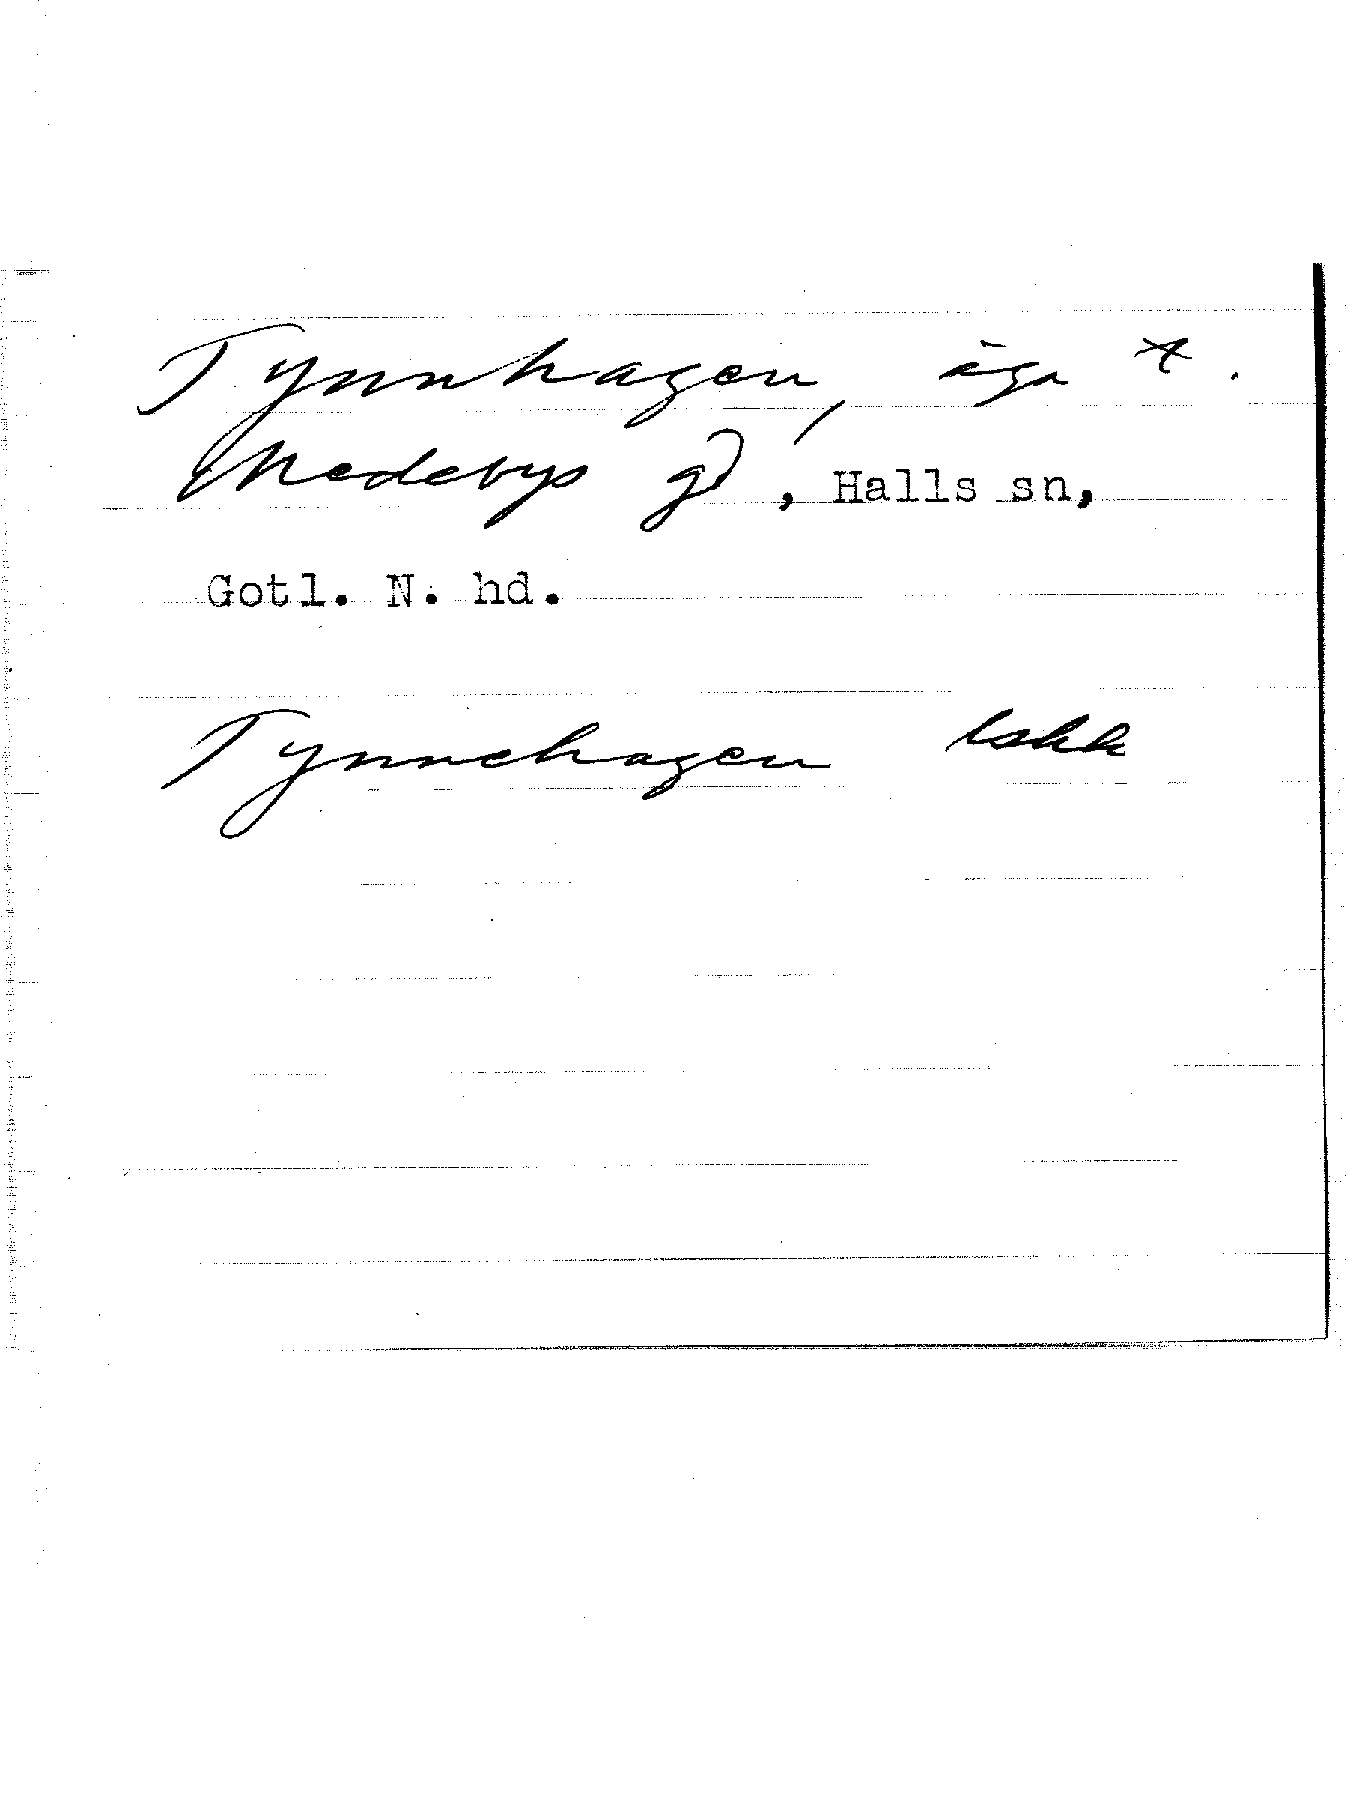 Tynnhagen, äga *.
Medebys gd, Halls sn,
Gotl. N. hd.
Tynnehagen lskk